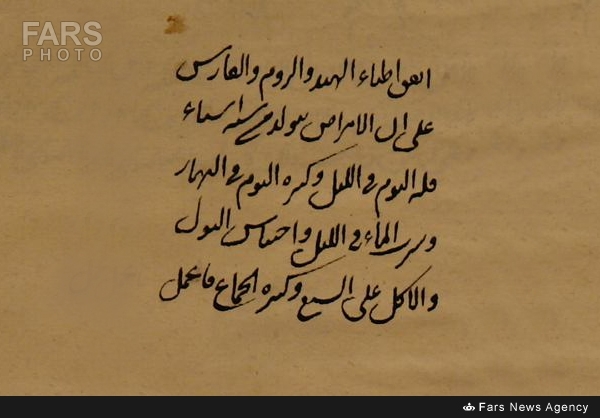 FARS
PHOTO
اتفق اطباء الهند والروم والفارس
على ان الامراض يتولد من ستة اشياء
قلة النوم في الليل وكثرة النوم في النهار
وشرب الماء في الليل واحتباس البول
والاكل على الشبع وكثرة الجماع فاعمل
Fars News Agency